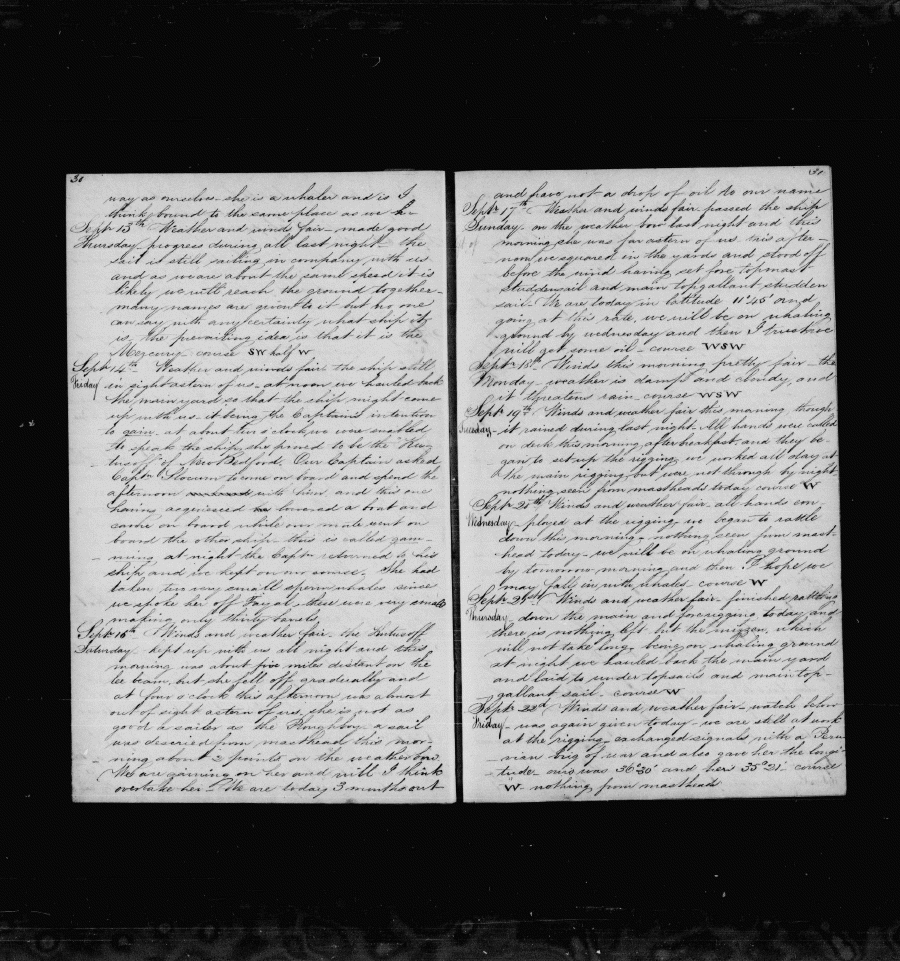 30
way as ourselves she is a whaler and is I
think bound to the same place as we are
Sept. 13th Weather and winds fair made good
Thursday progress during all last night the
sail is still sailing in company with us
and as we are about the same speed it is
likely we will reach the ground together
many names are given to it but no one
can say with any certainty what ship it
is, the prevailing idea is that it is the
Mercury course SW half W
Sept. 14th Weather and winds fair the ship still
Friday in sight astern of us at noon we hauled back
the main yard so that the ship might come
up with us it being the Captain's intention
to gam at about two o'clock we were enabled
to speak the ship, she proved to be the
of New Bedford. Our Captain asked
Capt. Slocum to come on board and spend the
afternoon with him, and this one
having acquiesced he lowered a boat and
came on board while our mate went on
board the other ship this is called gam-
ming at night the Capt. returned to his
ship and we kept on our course. She had
taken two very small sperm whales since
we spoke her off Fayal, these were very small
making only thirty barrels.
Sept. 15th Winds and weather fair the
Saturday kept up with us all night and this
morning was about five miles distant on the
lee beam, but she fell off gradually and
at four o'clock this afternoon was almost
out of sight astern of us, she is not as
good a sailer as the Ploughboy a sail
was descried from masthead this mor-
ning about 2 points on the weather bow
We are gaining on her and will I think
overtake her We are today 3 months out
31
and have not a drop of oil to our name
Sept. 17th Weather and winds fair passed the ship
Sunday on the weather bow last night and this
morning she was far astern of us this after-
noon we squared in the yards and stood off
before the wind having set fore topmast
studdensail and main topgallant studden
sail We are today in latitude 11°45' and
going at this rate, we will be on whaling
ground by wednesday and then I trust we
will get some oil course WSW
Sept. 18th Winds this morning pretty fair the
Monday weather is damp and cloudy, and
it threatens rain course WSW
Sept. 19th Winds and weather fair this morning though
Tuesday it rained during last night. All hands were called
on deck this morning after breakfast and they be-
gan to set up the rigging we worked all day at
the main rigging but were not through by night
nothing seen from mastheads today course W
Sept. 20th Winds and weather fair all hands em-
Wednesday ployed at the rigging we began to rattle
down this morning nothing seen from mast-
head today we will be on whaling ground
by tomorrow morning and then I hope we
may fall in with whales course W
Sept. 21st Winds and weather fair finished rattling
Thursday down the main and fore rigging today and
there is nothing left but the mizzen, which
will not take long being on whaling ground
at night we hauled back the main yard
and laid to under topsails and main top-
gallant sail course W
Sept. 22d Winds and weather fair watch below
Friday was again given today we are still at work
at the rigging exchanged signals with a Peru-
vian brig of war and also gave her the longi-
tude ours was 36°30' and her 35°21' course
W nothing from masthead